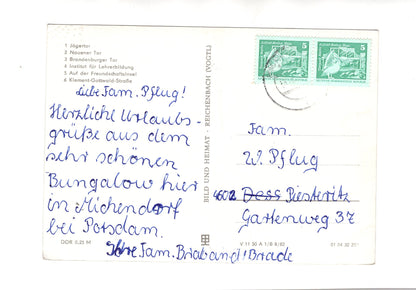 1 Jägertor
2 Nauener Tor
3 Brandenburger Tor
4 Institut für Lehrerbildung
5 Auf der Freundschaftsinsel
6 Klement-Gottwald-Straße
Liebe Fam. Pflug!
Herzliche Urlaubs-
grüße aus dem
sehr schönen
Bungalow hier
in Michendorf
bei Potsdam.
Ihre Fam. Briaband/Brade
DDR 0,25 M
BILD UND HEIMAT · REICHENBACH (VOGTL)
5
5
Fam.
W. Pflug
4602 Dess Piesteritz
Gartenweg 37
V 11 30 A 1/B 8/82